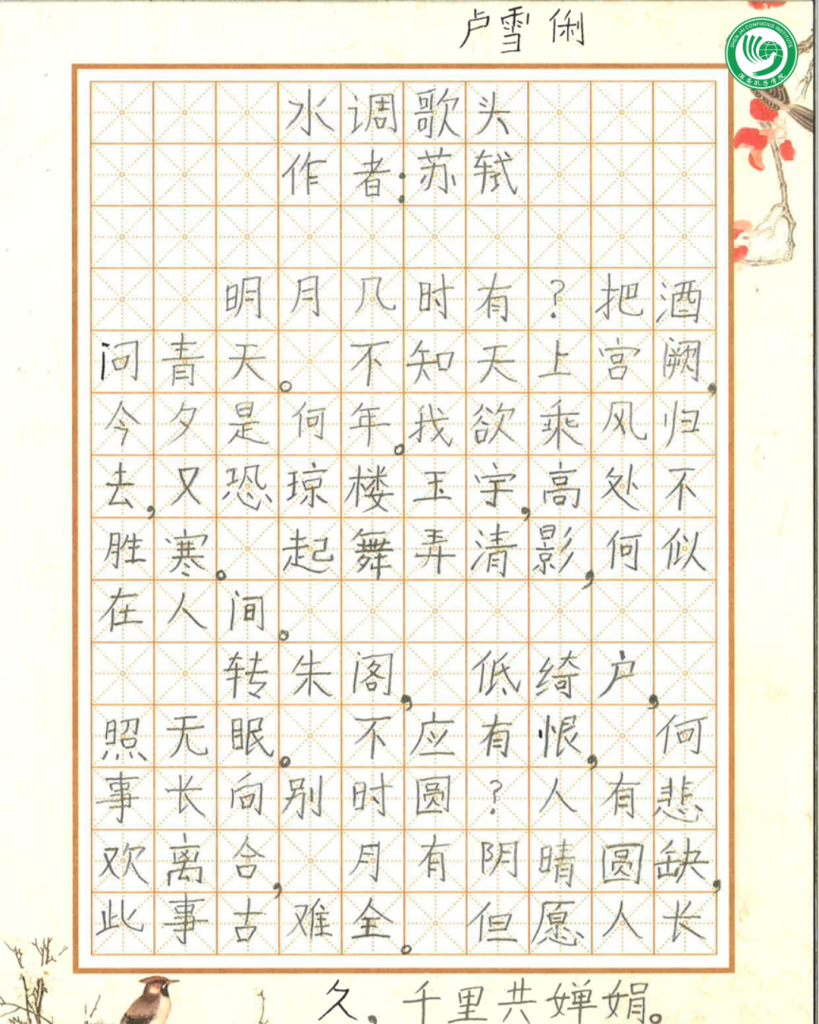 卢雪俐
SHEN JAI CONFUCIUS INSTITUTE
水调歌头
作者:苏轼
明月几时有?把酒
问青天。不知天上宫阙,
今夕是何年。我欲乘风归
去,又恐琼楼玉宇,高处不
胜寒。起舞弄清影,何似
在人间。
转朱阁,低绮户,
照无眠。不应有恨,何
事长向别时圆?人有悲
欢离合,月有阴晴圆缺,
此事古难全。但愿人长
久,千里共婵娟。